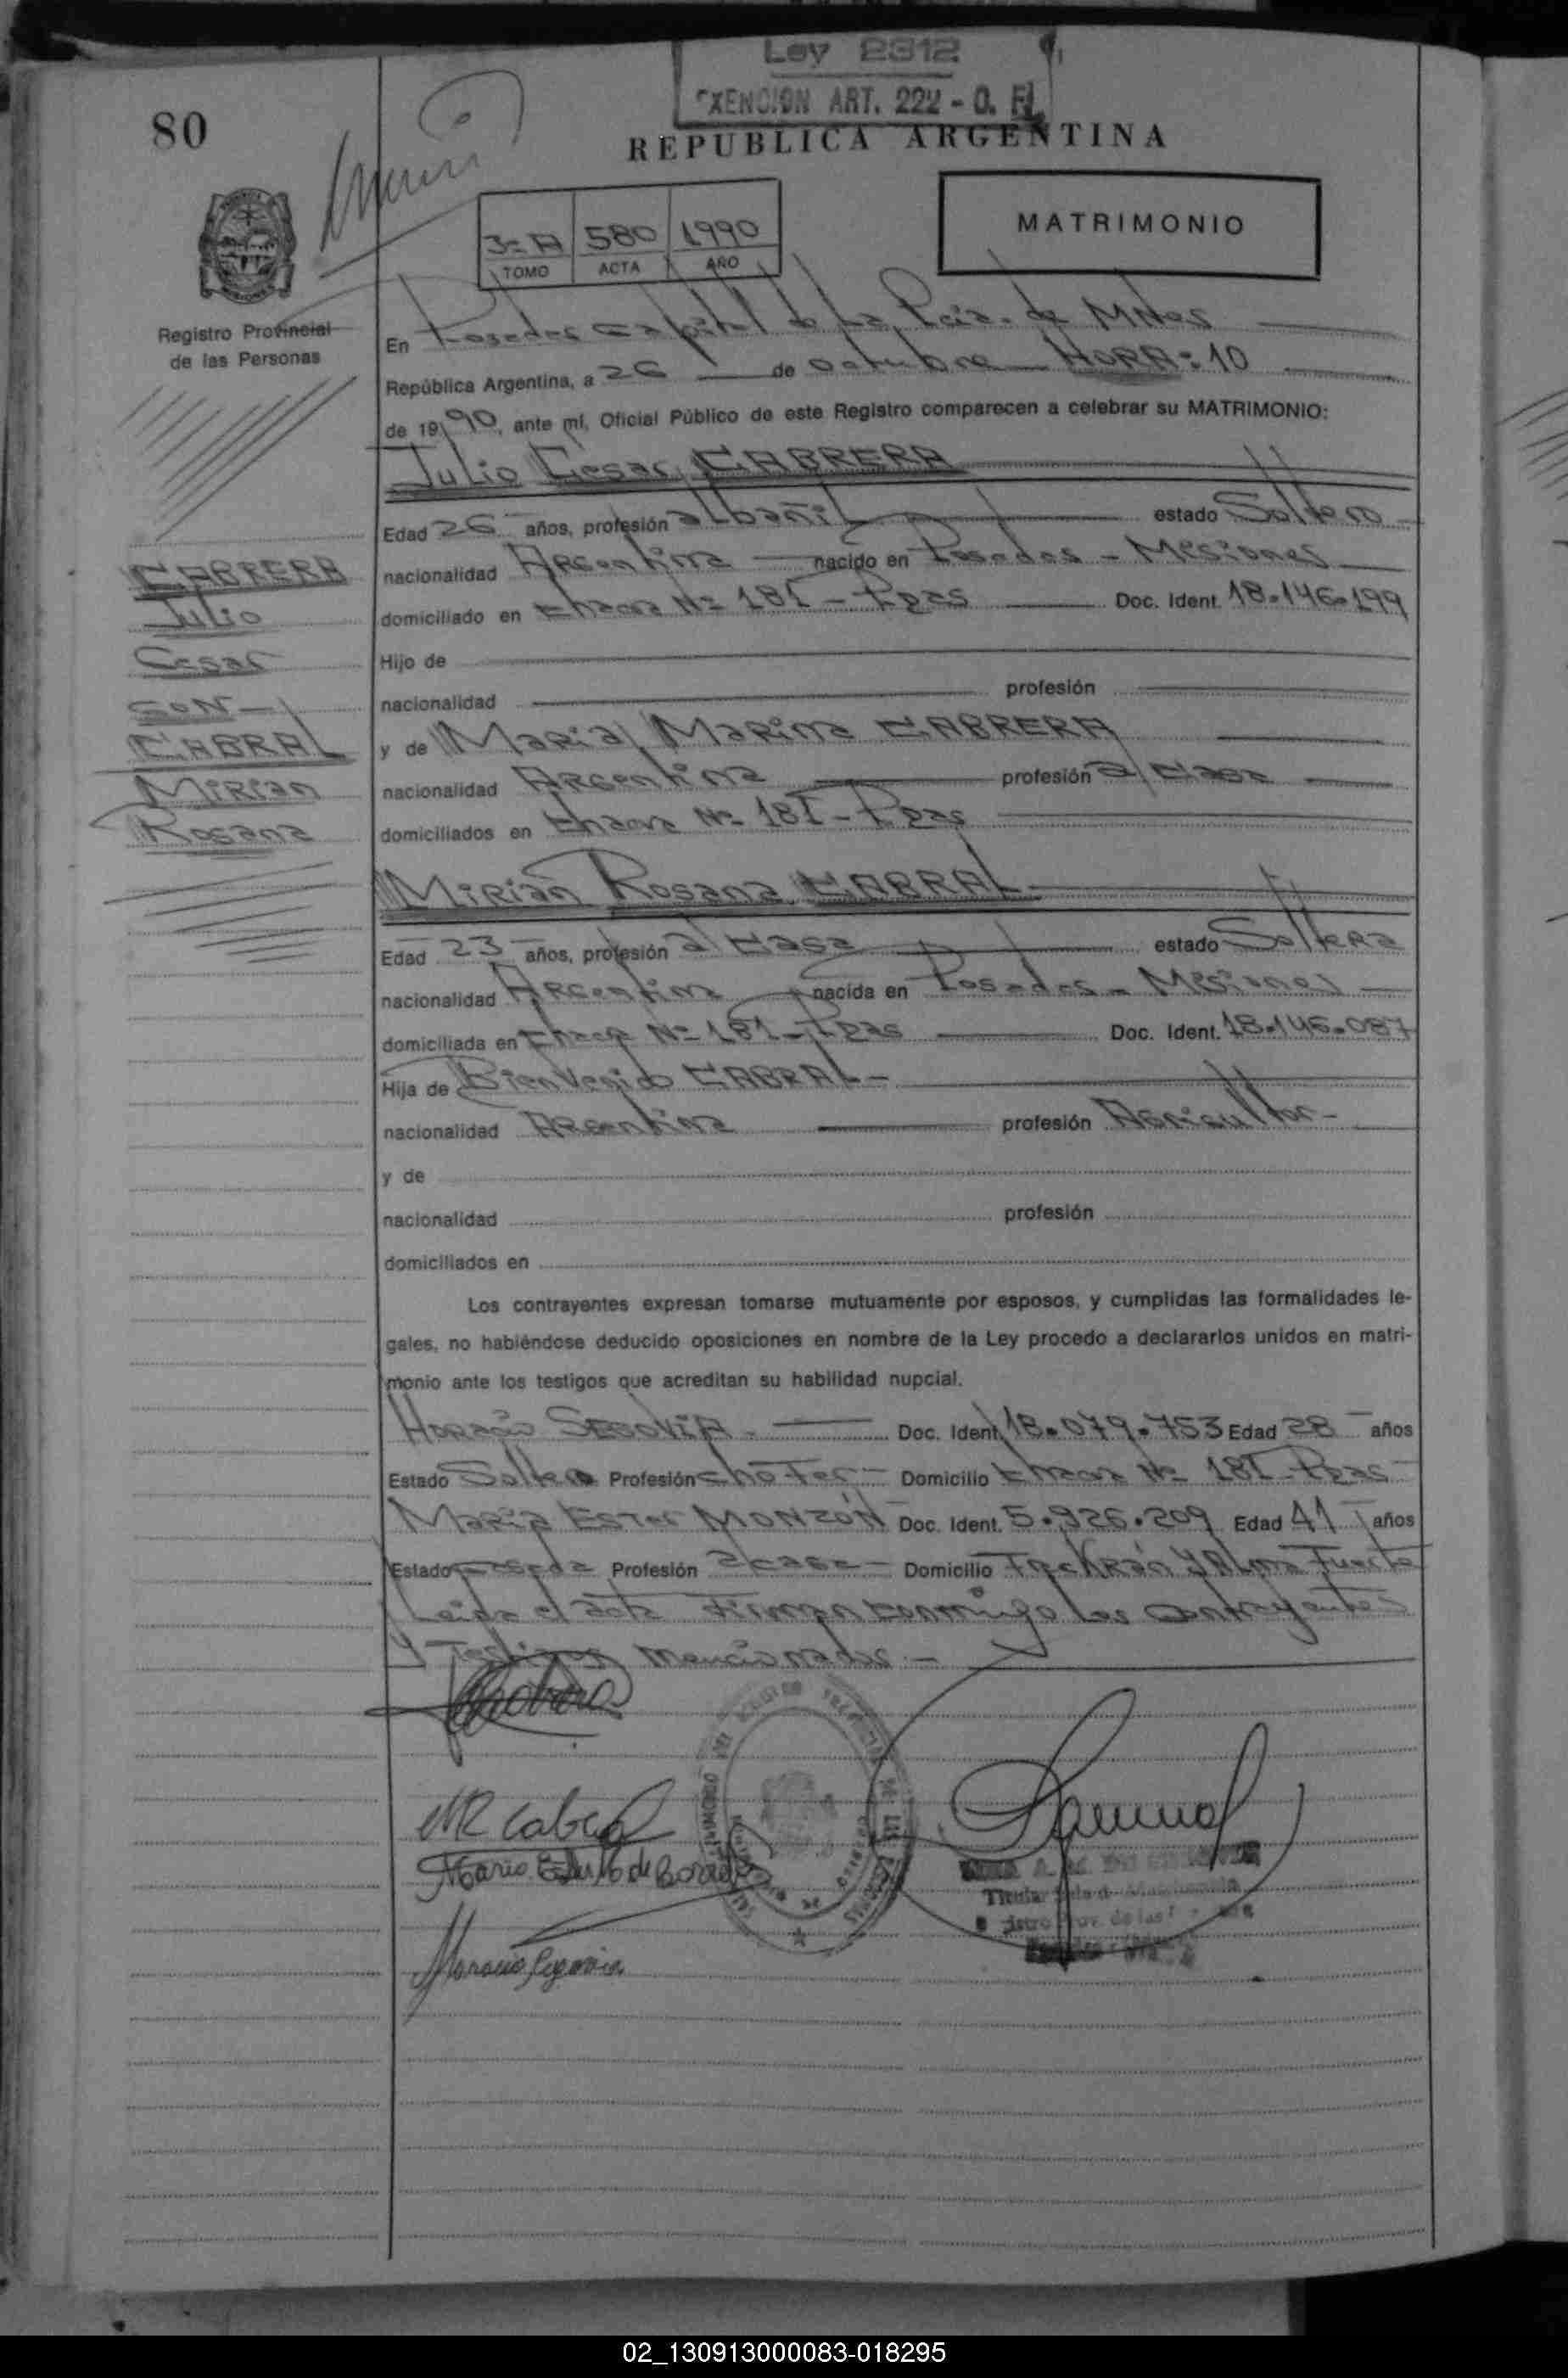 Ley 2312
EXENCION ART. 222 - O. F.
80
REPUBLICA ARGENTINA
3=A 580 1990
TOMO ACTA AÑO
MATRIMONIO
Registro Provincial
de las Personas
En Posadas Capital de la Pcia. de Mnes
República Argentina, a 26 de octubre HORA: 10
de 1990, ante mí, Oficial Público de este Registro comparecen a celebrar su MATRIMONIO:
Julio Cesar CABRERA
Edad 26 años, profesión albañil estado Soltero
nacionalidad Argentina nacido en Posadas - Misiones
domiciliado en Chacra Nº 181 - Pdas Doc. Ident. 18.146.199
Hijo de
nacionalidad profesión
y de Maria Marina CABRERA
nacionalidad Argentina profesión a/ casa
domiciliados en Chacra Nº 181 - Pdas
CABRERA
Julio
Cesar
CON -
CABRAL
Mirian
Rosana
Mirian Rosana CABRAL
Edad 23 años, profesión a/ casa estado Soltera
nacionalidad Argentina nacida en Posadas - Misiones
domiciliada en Chacra Nº 181 - Pdas Doc. Ident. 18.146.087
Hija de Bienvenido CABRAL -
nacionalidad Argentina profesión Agricultor -
y de
nacionalidad profesión
domiciliados en
Los contrayentes expresan tomarse mutuamente por esposos, y cumplidas las formalidades le-
gales, no habiéndose deducido oposiciones en nombre de la Ley procedo a declararlos unidos en matri-
monio ante los testigos que acreditan su habilidad nupcial.
Horacio SEGOVIA. Doc. Ident. 18.079.753 Edad 28 años
Estado Soltero Profesión chofer - Domicilio Chacra Nº 181 - Pdas -
Maria Ester MONZÓN Doc. Ident. 5.926.209 Edad 41 años
Estado casada Profesión a casa - Domicilio Tacuarí y Alma Fuerte
Leida el acta firman conmigo los contrayentes
y Testigos mencionados. -
MR Cabral
Horacio Segovia
Titular
02_130913000083-018295